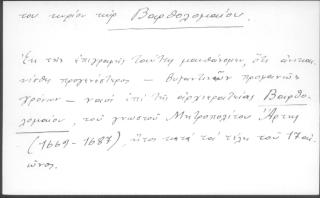 του κυρίου κὺρ Βαρθολομαίου.
Ἐκ τῆς ἐπιγραφῆς ταύτης μανθάνομεν, ὅτι ἀνεκαι-
νίσθη προγενέστερος – βυζαντινῶν προφανῶς
χρόνων – ναὸς ἐπὶ τῆς ἀρχιερατείας Βαρθο-
λομαίου, τοῦ γνωστοῦ Μητροπολίτου Ἄρτης
(1669-1687), ἤτοι κατὰ τὰ τέλη τοῦ 17ου αἰ-
ῶνος.